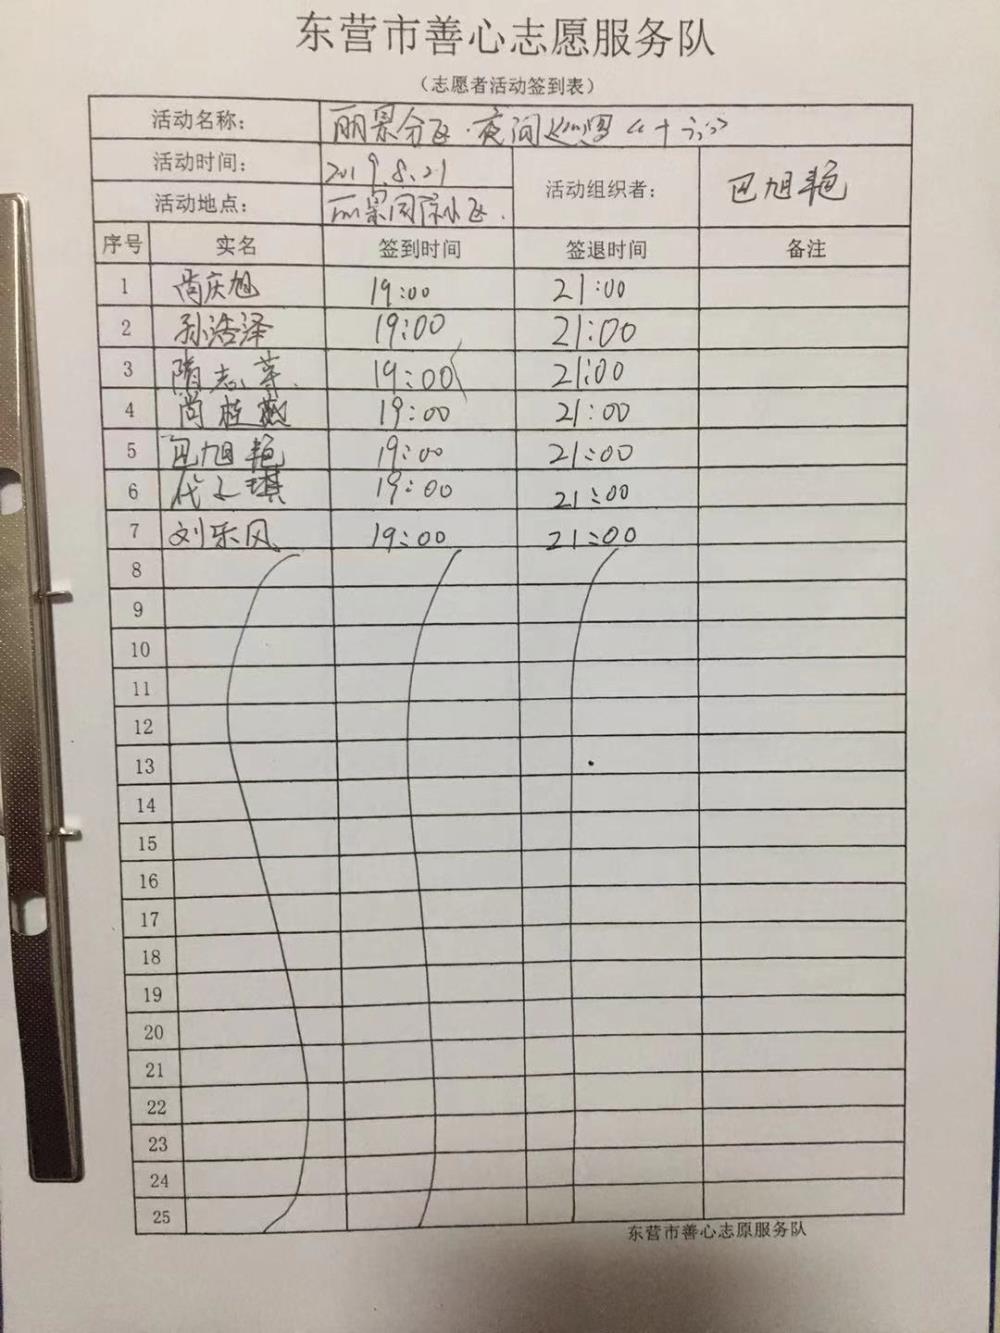 东营市善心志愿服务队
（志愿者活动签到表）
活动名称： 丽景分区·夜间巡逻《十六》
活动时间： 2019.8.21
活动组织者： 巴旭艳
活动地点： 丽景国际小区.
序号 实名 签到时间 签退时间 备注
1 尚庆旭 19:00 21:00
2 孙浩泽 19:00 21:00
3 隋志 19:00 21:00
4 尚桂燕 19:00 21:00
5 巴旭艳 19:00 21:00
6 代文琪 19:00 21:00
7 刘乐风 19:00 21:00
8
9
10
11
12
13
14
15
16
17
18
19
20
21
22
23
24
25
东营市善心志原服务队